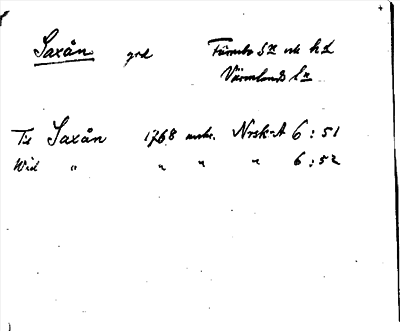 Saxån grd Färnebo sn o h d
Värmlands ln
Till Saxån 1768 ankr. NrskA 6:51
Wid " " " " 6:52